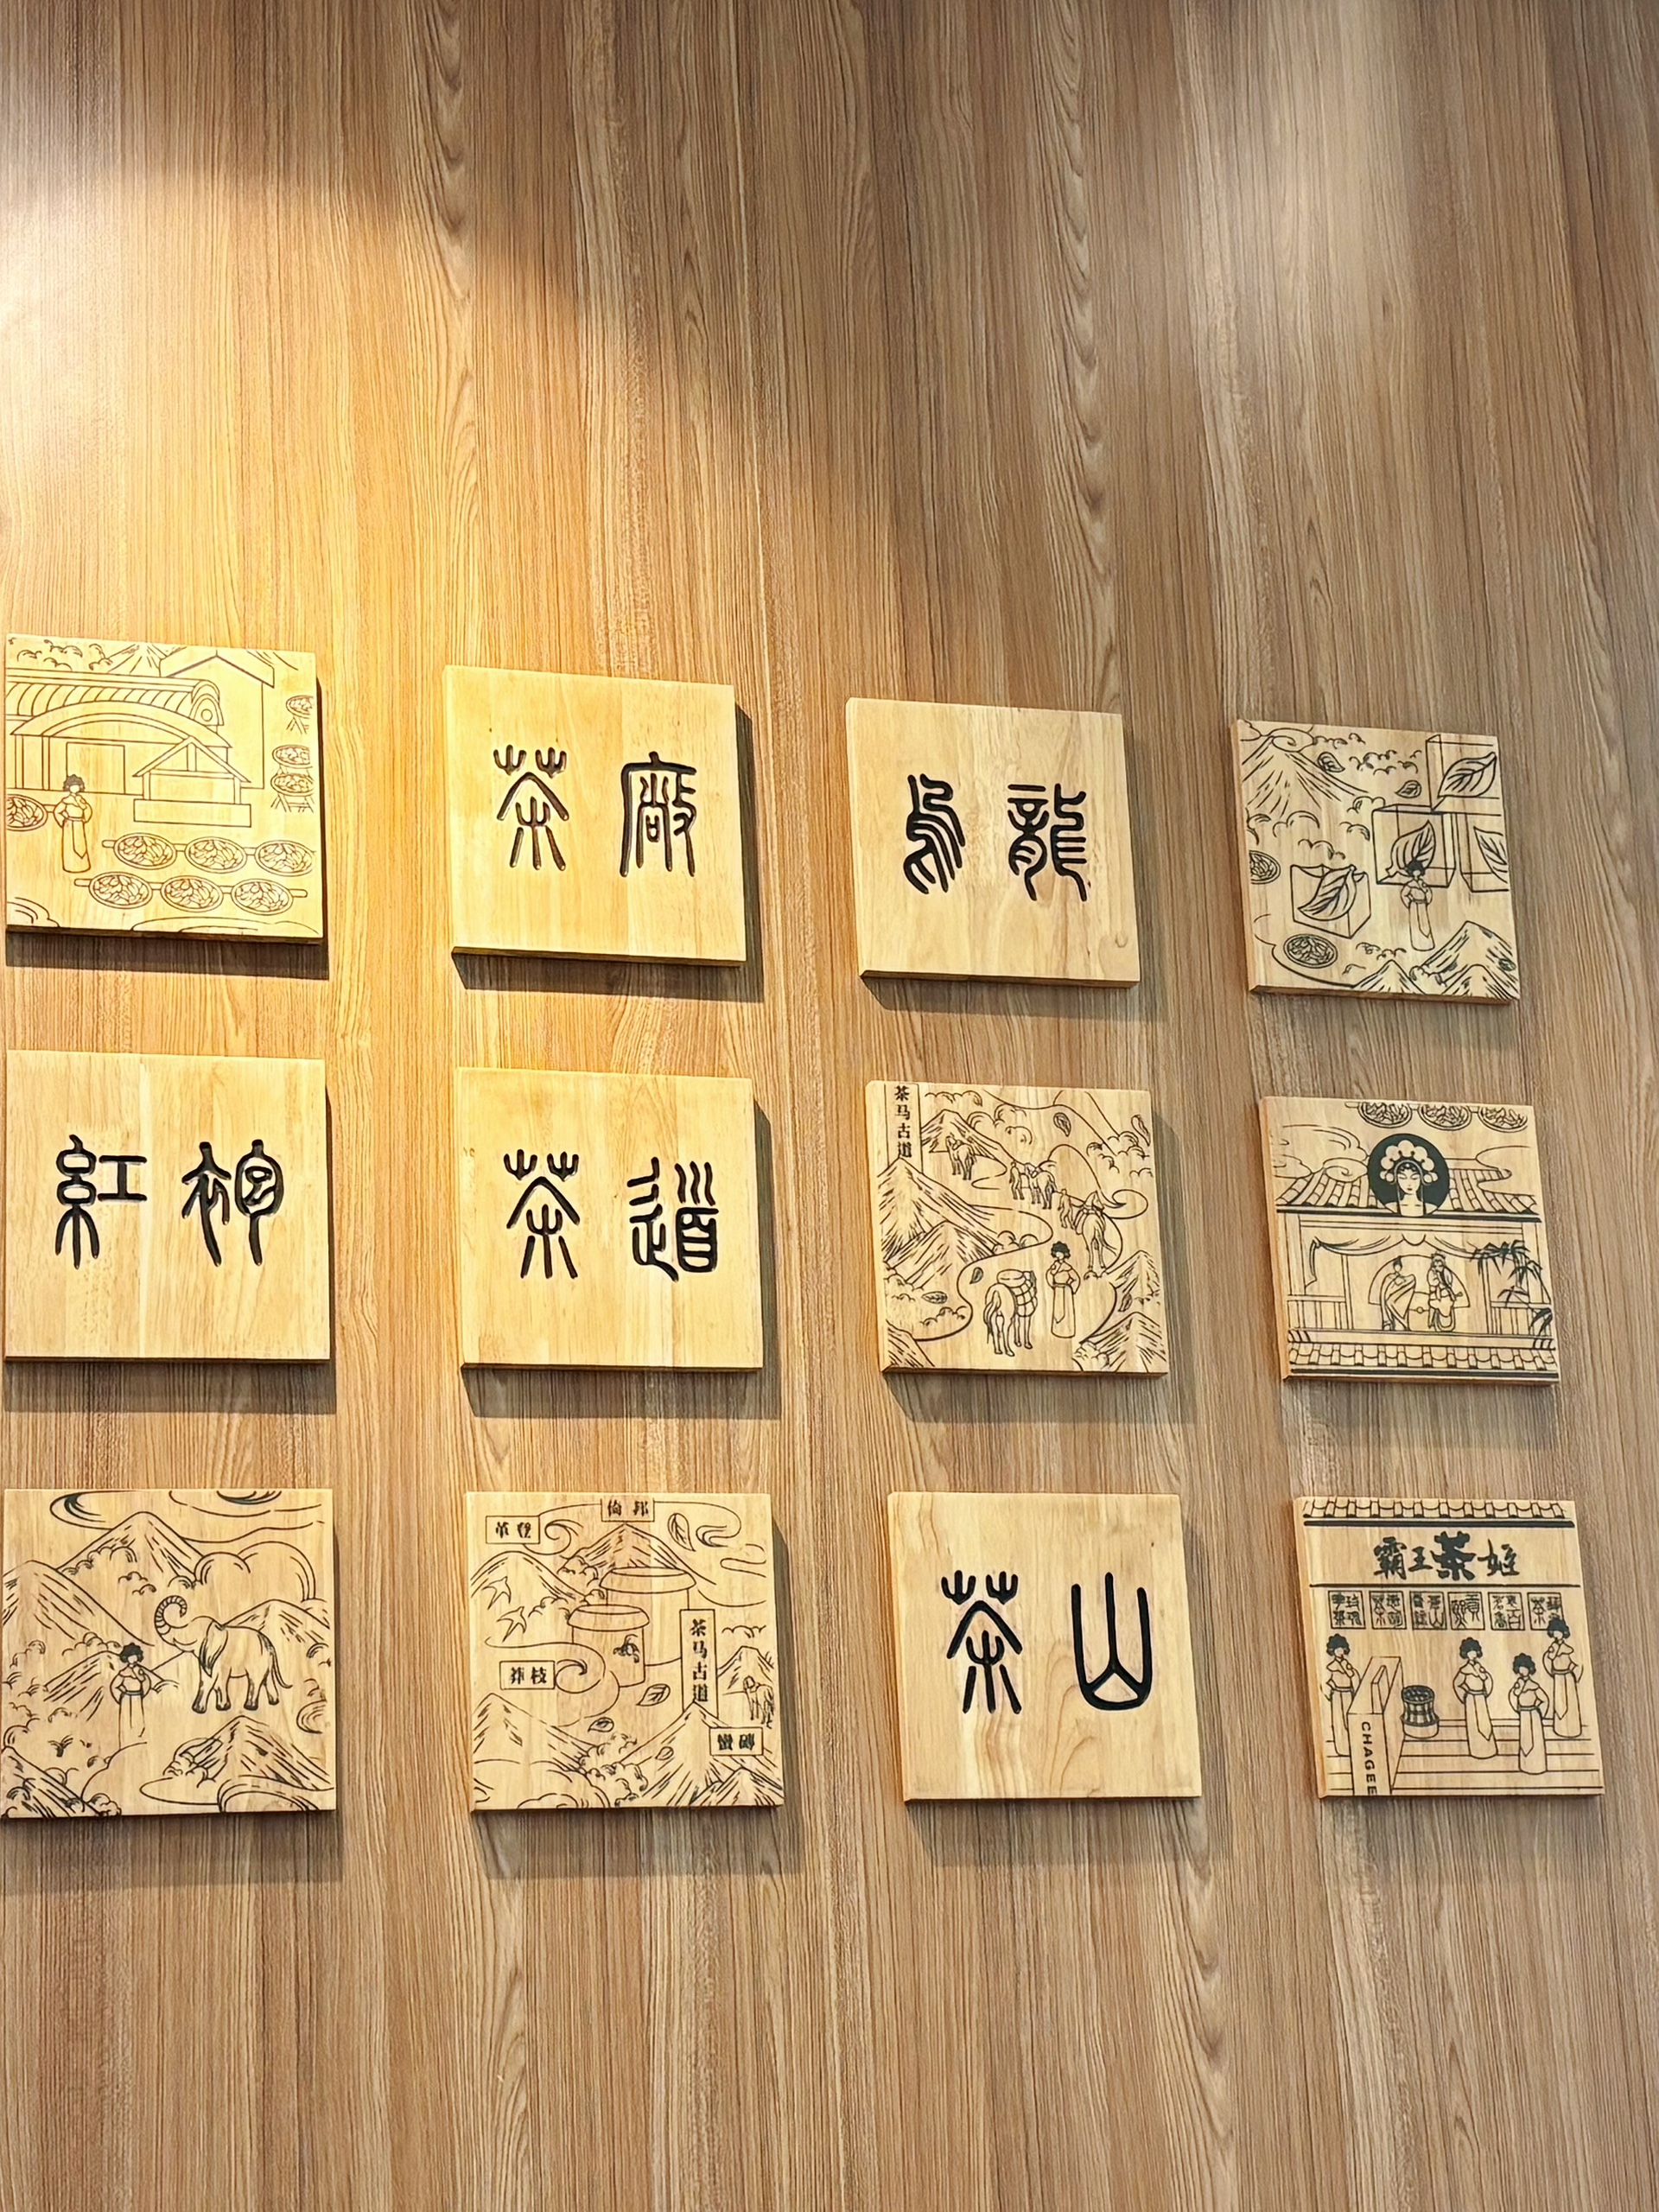 茶廠
烏龍
紅袍
茶道
茶马古道
倚邦
革登
莽枝
茶马古道
蛮砖
茶山
霸王茶姬
CHAGEE